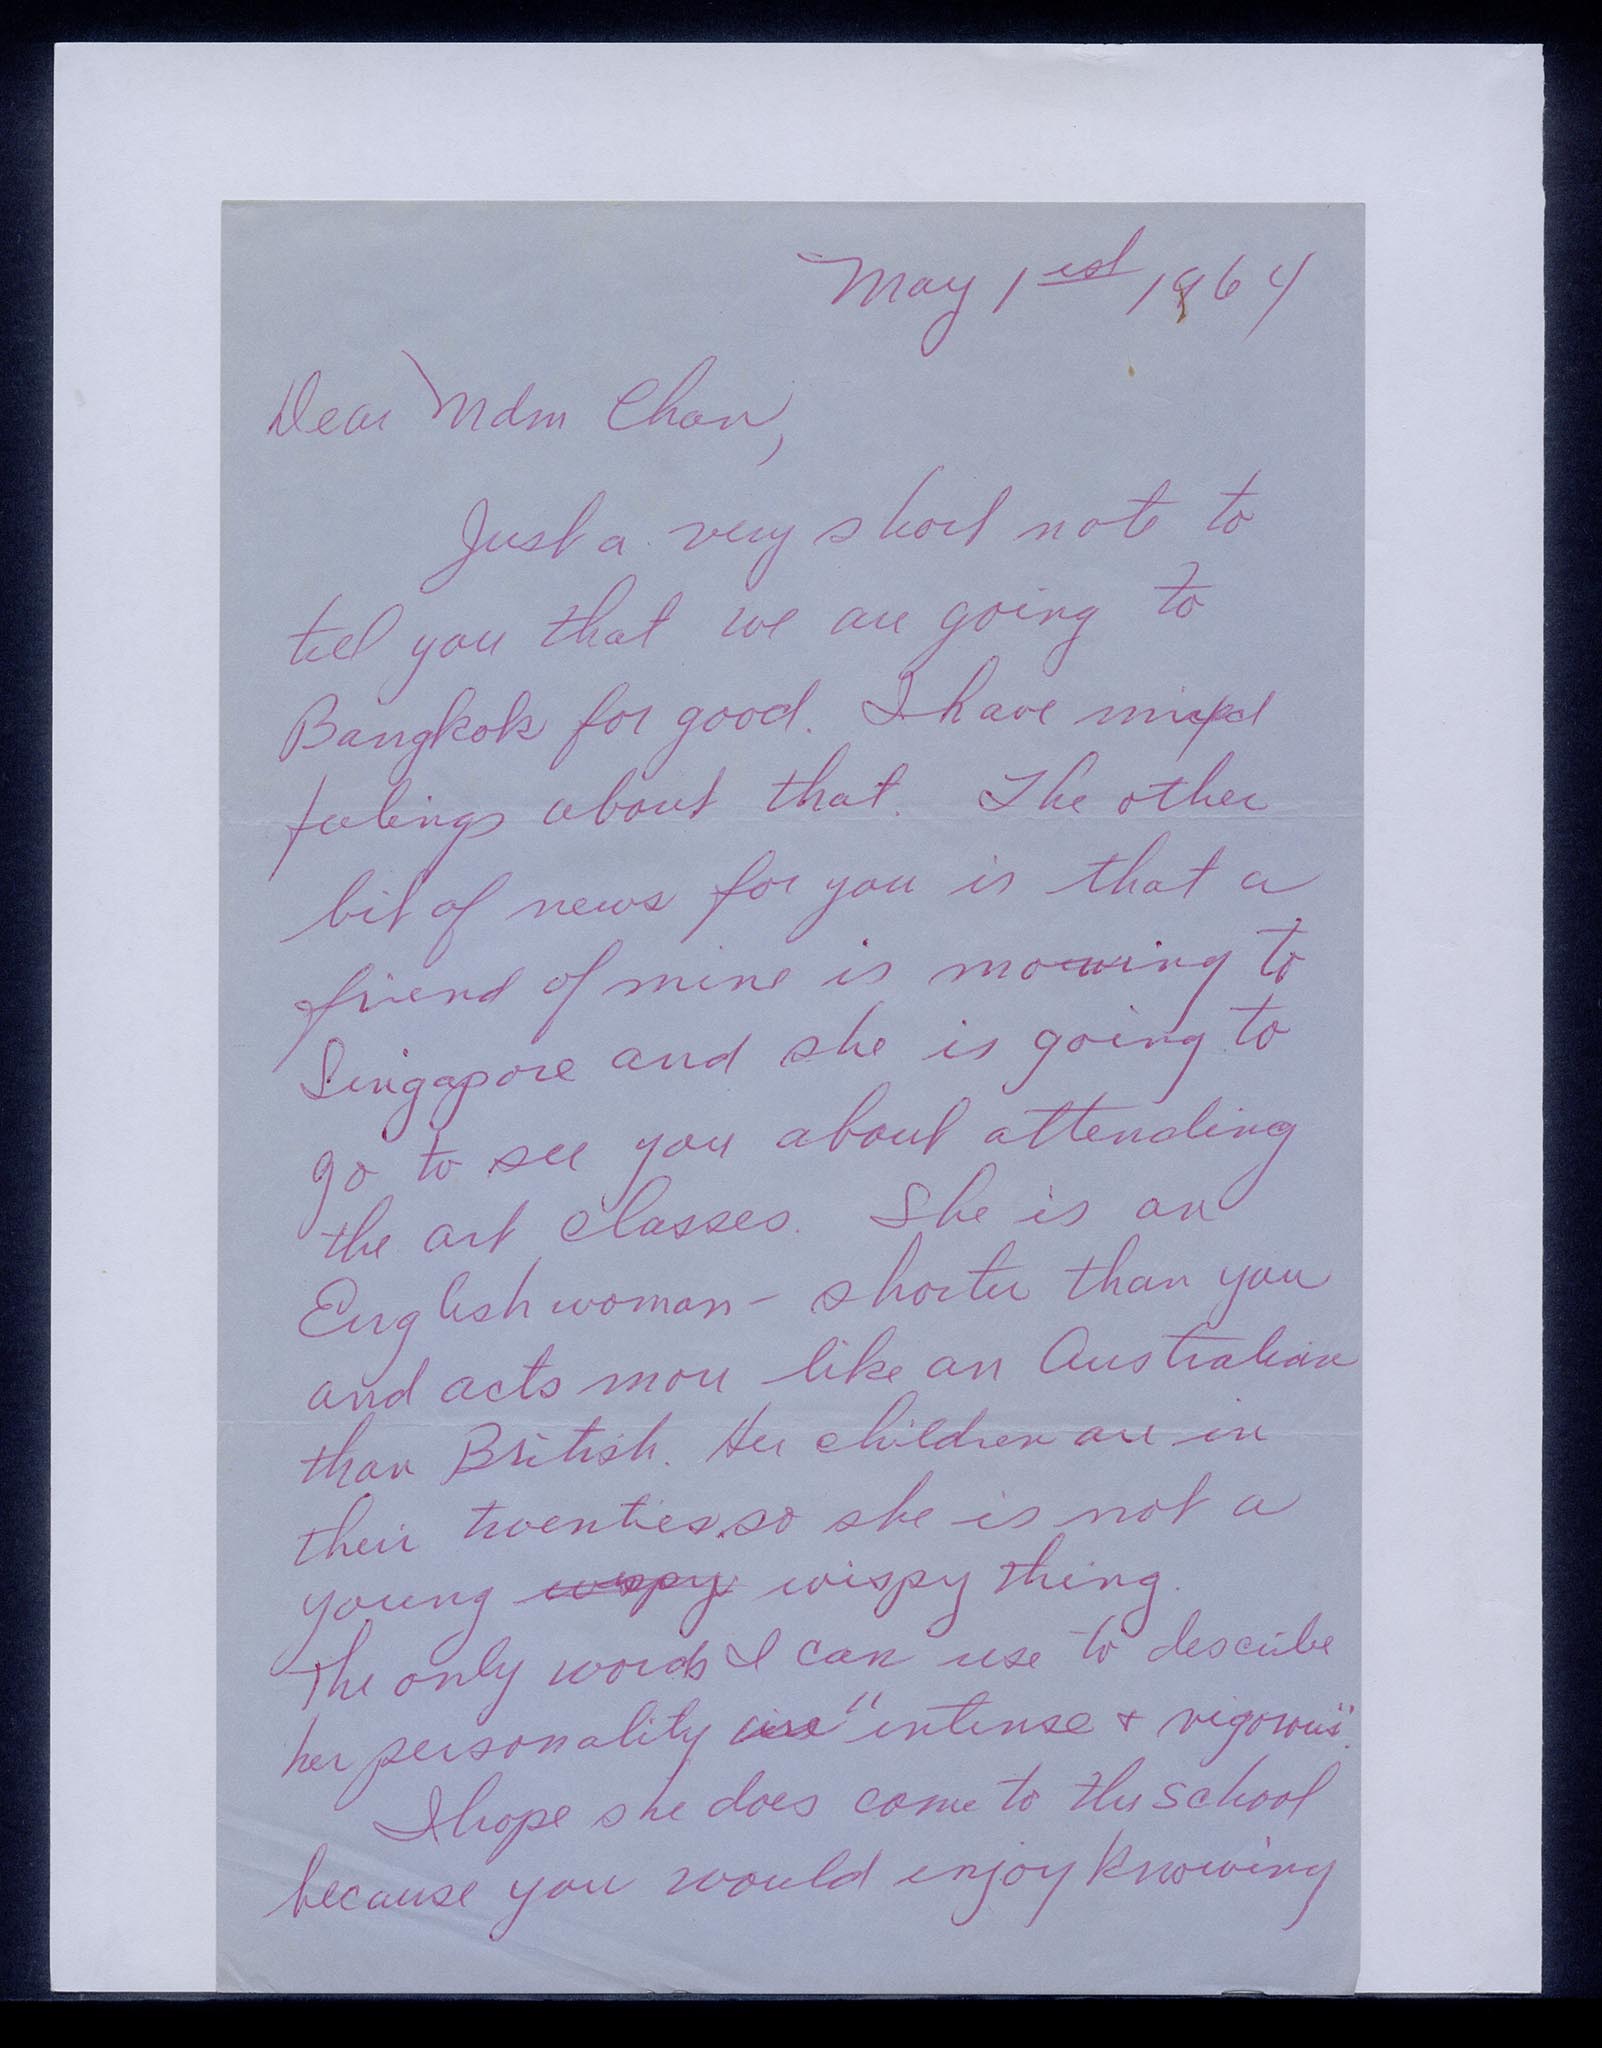 May 1st 1964
Dear Mdm Chan,
Just a very short note to
tell you that we are going to
Bangkok for good. I have mixed
feelings about that. The other
bit of news for you is that a
friend of mine is moving to
Singapore and she is going to
go to see you about attending
the art classes. She is an
English woman - shorter than you
and acts more like an Australian
than British. Her children are in
their twenties, so she is not a
young wispy wispy thing.
The only words I can use to describe
her personality are "intense & vigorous".
I hope she does come to the school
because you would enjoy knowing